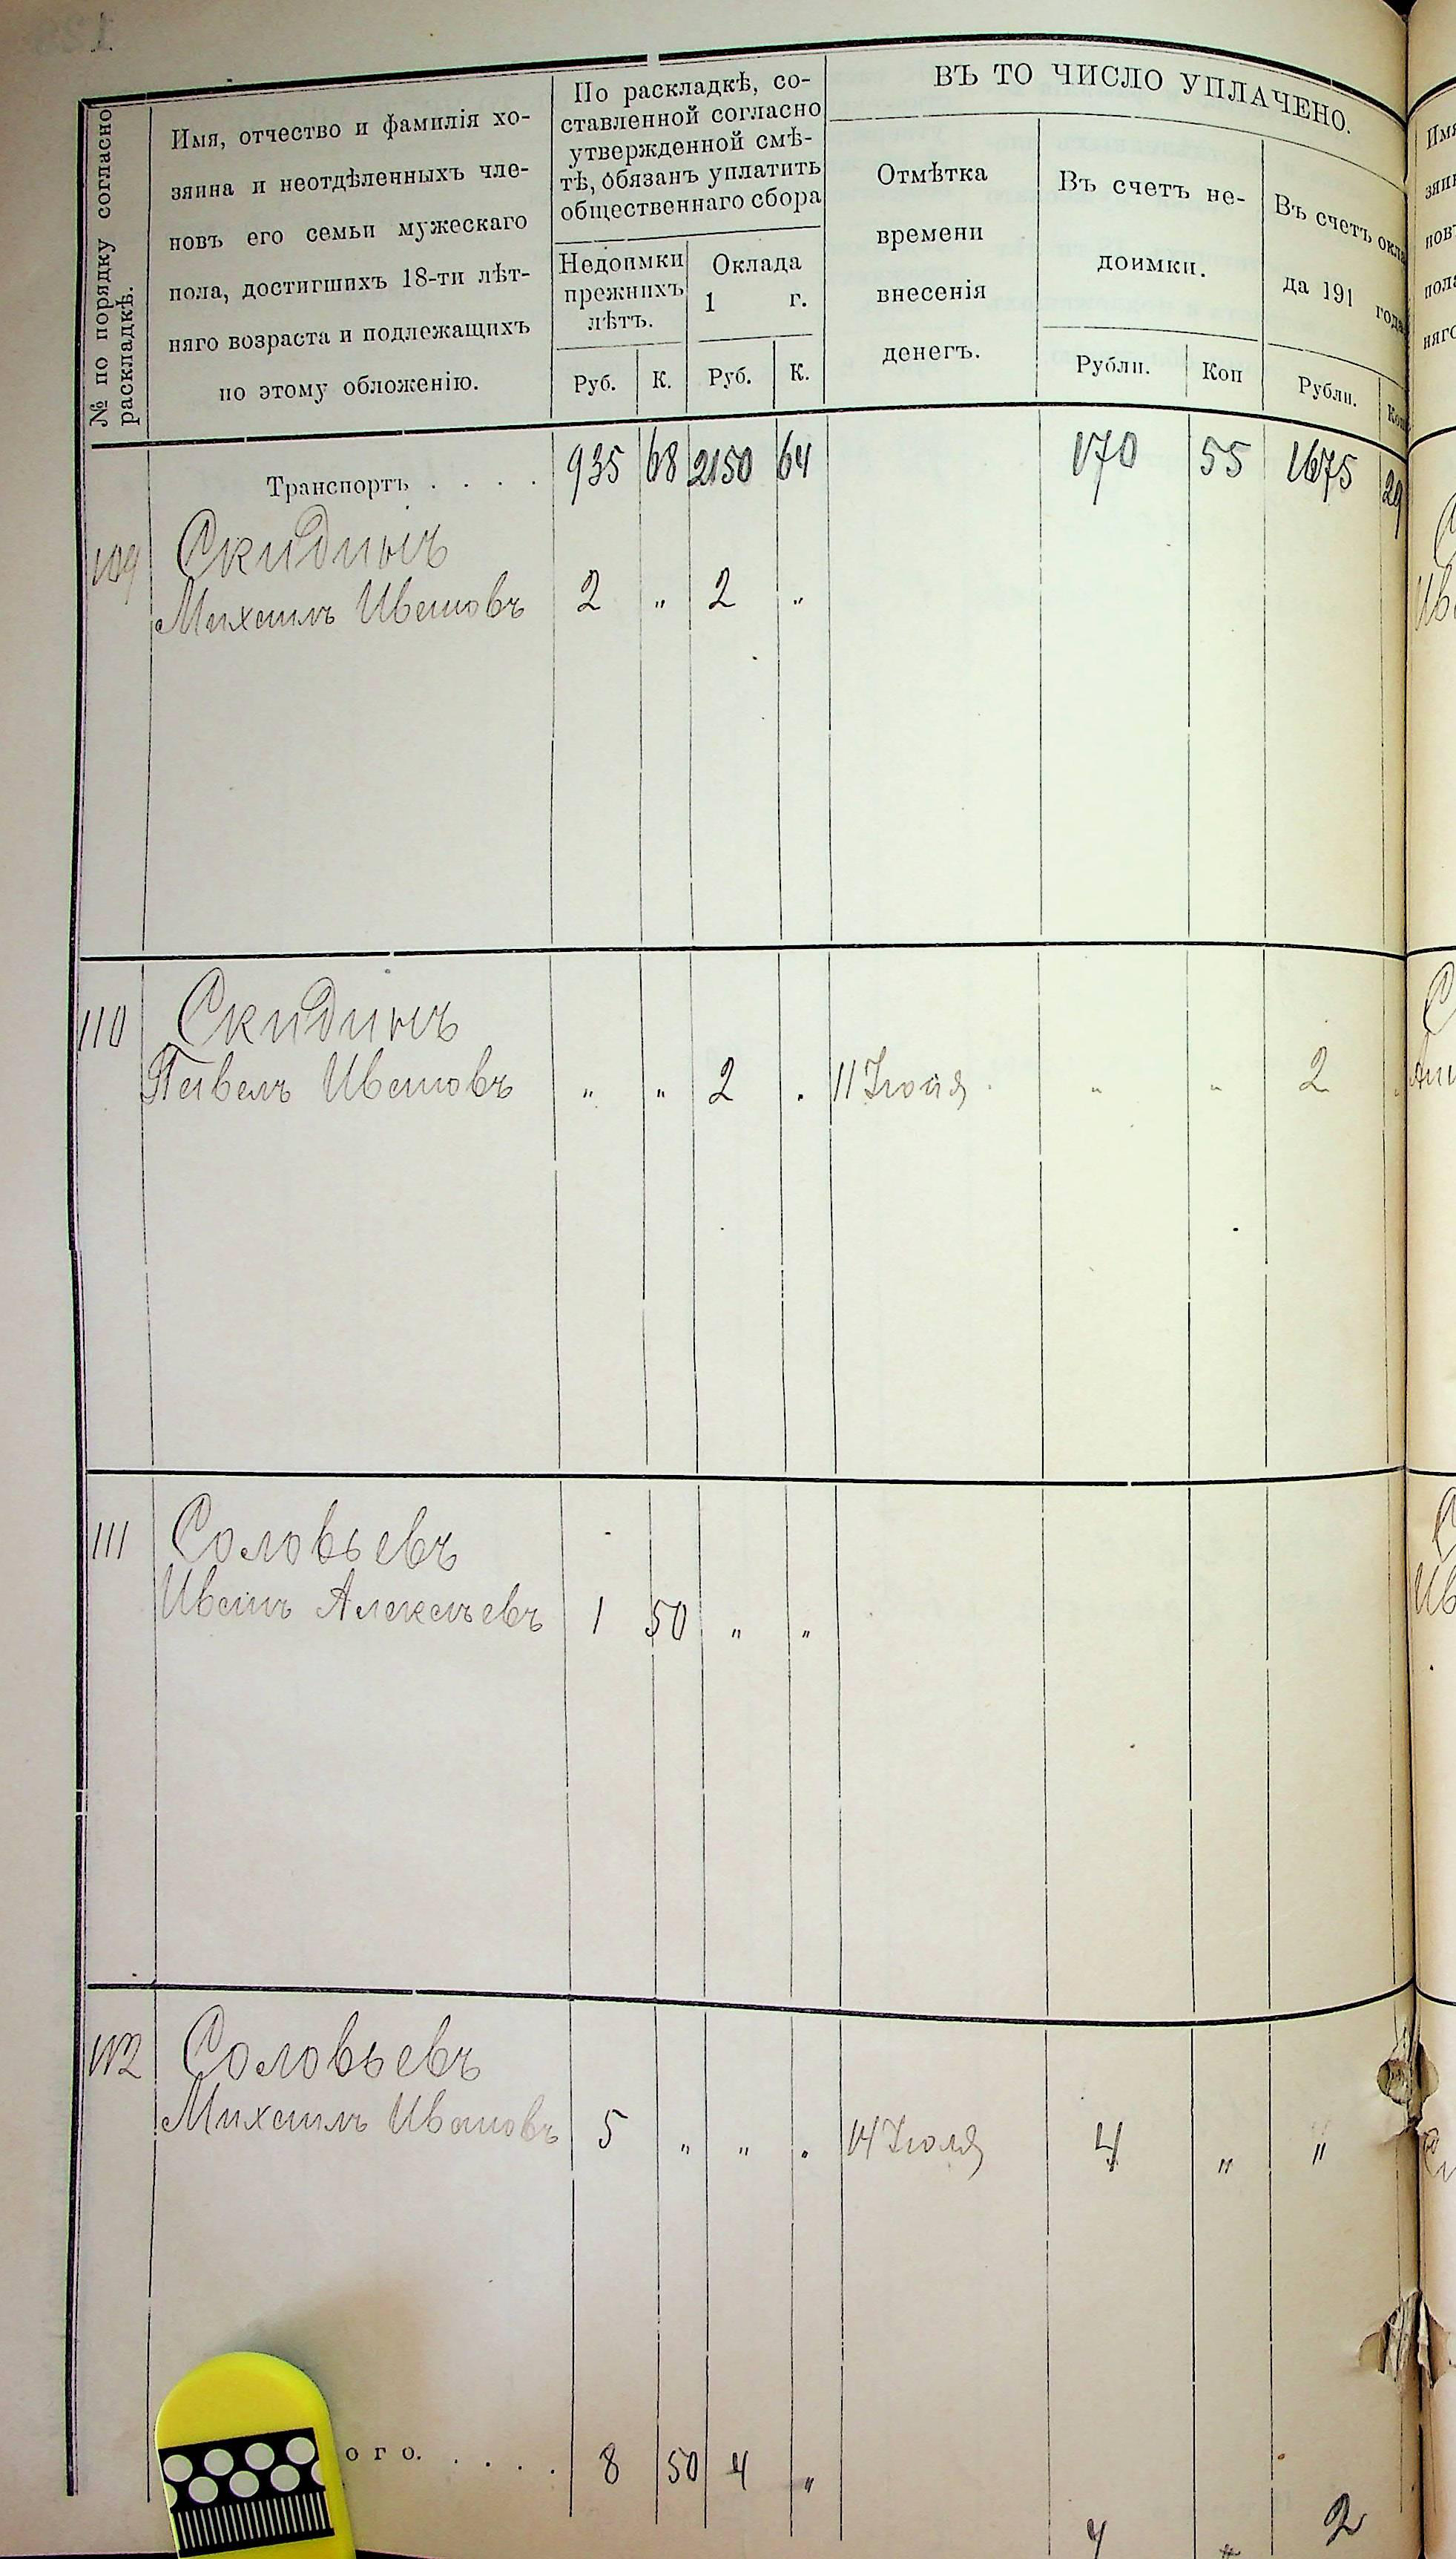 № по порядку согласно
раскладкѣ.
Имя, отчество и фамилія хо-
зяина и неотдѣленныхъ чле-
новъ его семьи мужескаго
пола, достигшихъ 18-ти лѣт-
няго возраста и подлежащихъ
по этому обложенію.
По раскладкѣ, со-
ставленной согласно
утвержденной смѣ-
тѣ, обязанъ уплатить
общественнаго сбора
Недоимки
прежнихъ
лѣтъ.
Оклада
1 г.
Руб. К. Руб. К.
ВЪ ТО ЧИСЛО УПЛАЧЕНО.
Отмѣтка
времени
внесенія
денегъ.
Въ счетъ не-
доимки.
Рубли. Коп
Въ счетъ окла
да 191 года
Рубли. Коп
Транспортъ . . . . 935 68 2150 64 170 55 1675 29
109 Скидинъ
Михаилъ Ивановъ 2 „ 2 „
110 Скидинъ
Павелъ Ивановъ „ „ 2 . 11 Іюня „ „ 2
111 Соловьевъ
Иванъ Алексѣевъ 1 50 „ „
112 Соловьевъ
Михаилъ Ивановъ 5 „ „ . 14 Іюля 4 „ „
ого. . . . . 8 50 4 „
4 „ 2